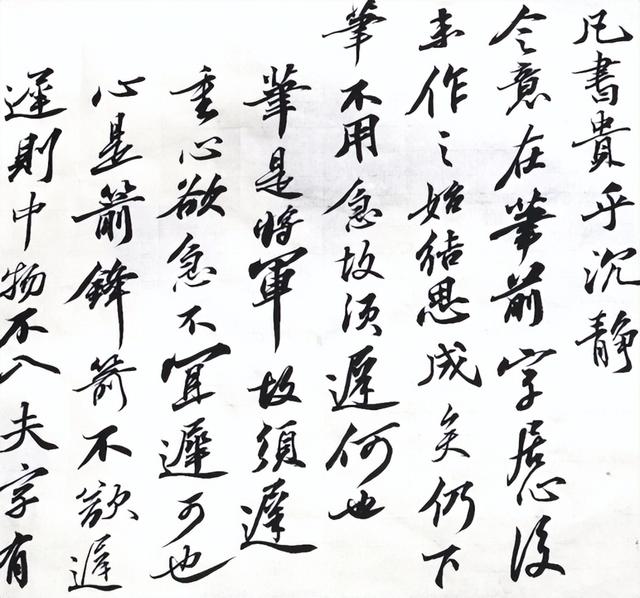 凡書貴乎沉静
令意在筆前字居心後
未作之始结思成矣仍下
筆不用急故须遲何也
筆是将軍故須遲
重心欲急不宜遲可也
心是箭鋒箭不欲遲
遲則中物不入夫字有